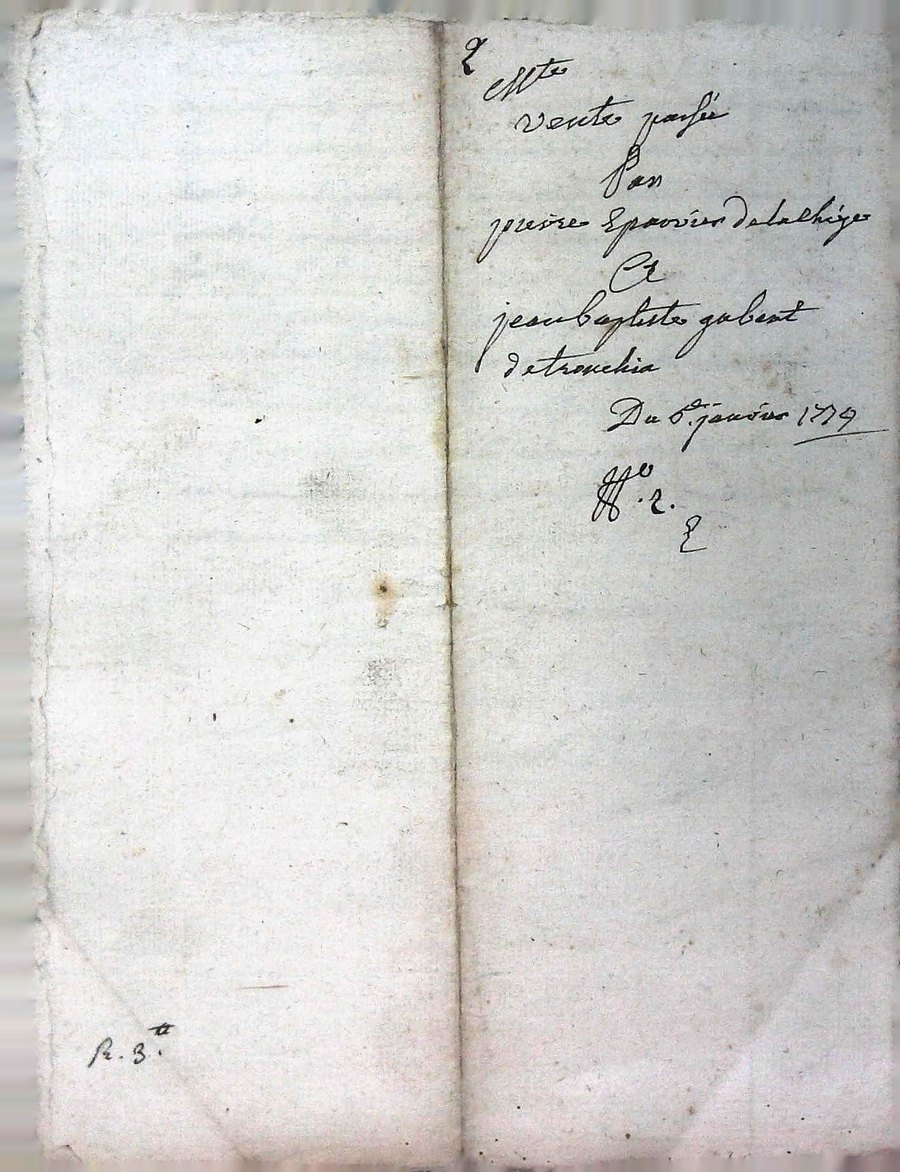 2
Mte
vente passée
Par
pierre Eparvier delathige
A
jean baptiste gubert
detrouchia
Du 6e. janvier 1779
No. 2.
R. 3.tt